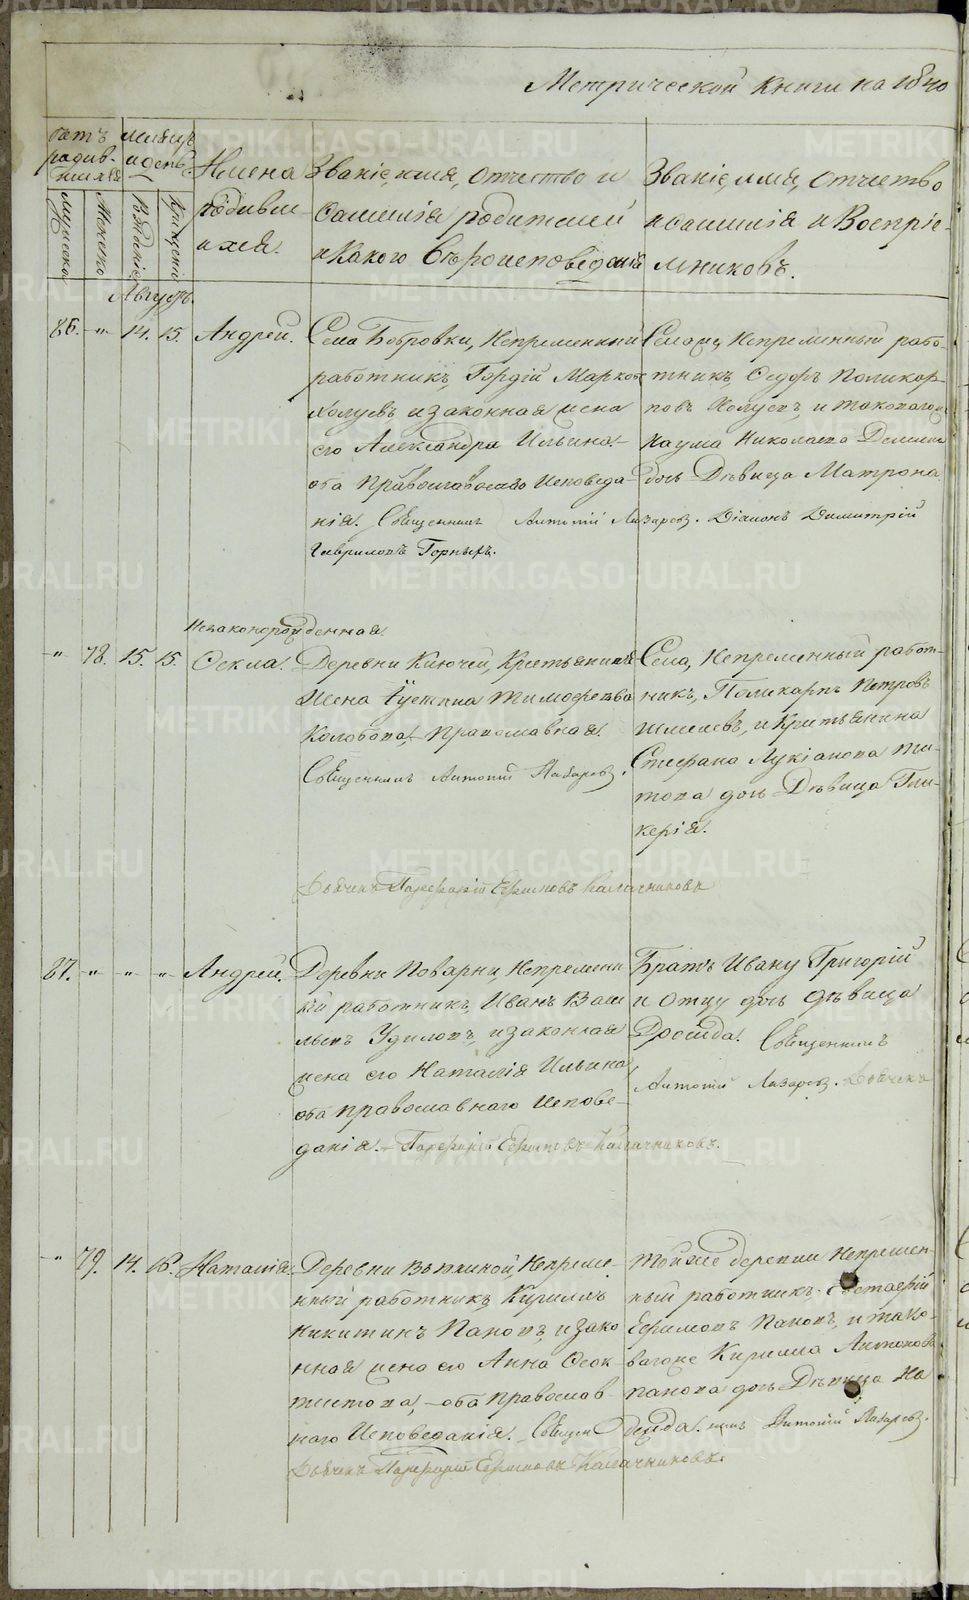 Метрической книги на 1840
щотъ родив-шихся
мѣсяцъ и день
Имена родившихся.
Званіе, имя, отчество и фамилія родителей и какого вѣроисповѣданія
Званіе, имя, отчество и фамилія и воспріемниковъ.
мужеска
женска
рожденіе
крещеніе
Августъ.
86. -"- 14. 15. Андрей.
Села Бобровки, Непременный
работникъ, Гордій Марковъ
Холуевъ и законная жена
его Александра Ильина
оба Православнаго Исповеда-
нія. Священникъ Антоній Лазаревъ. Діаконъ Димитрій
Гавриловъ Горныхъ.
Селащ, Непременный рабо-
тникъ, Ѳедоръ Поликар-
повъ Холуевъ, и таковагож
Наума Николаева Демина
дочь Дѣвица Матрона
Незаконорожденная
-"- 78. 15. 15. Ѳекла.
Деревни Ключей, Крестьянская
жена Іустина Тимофеева
Колобова, Православная.
Священникъ Антоній Лазаревъ.
Села, Непременный работ-
никъ, Поликарпъ Петровъ
Шмелевъ, и Крестьянина
Стефана Лукіанова Ти-
това дочь Дѣвица Гли-
керія.
Дьячекъ Парфирій Ефимовъ Калачниковъ
87. -"- " " Андрей.
Деревни Поварни, Непремен-
ный работникъ, Иванъ Васи-
льевъ Удиловъ, и законная
жена его Наталія Ильина
оба православнаго Испове-
данія. Парфирій Ефимовъ Калачниковъ.
Братъ Ивану Григорій
и отцу дочь дѣвица
Дросида. Священникъ
Антоній Лазаревъ. Дьячекъ
-"- 79. 14. 18. Наталія.
Деревни Вяткиной, Непреме-
нный работникъ Кириллъ
Никитинъ Пановъ, и зако-
нная жена его Анна Ѳеок-
тистова, оба православ-
наго Исповеданія. Священ
никъ Антоній Лазаревъ.
Дьячекъ Парфирій Ефимовъ Калачниковъ.
Тойже деревни Непремен-
ный работникъ Евстафій
Ефимовъ Пановъ, и тако-
вагоже Кирилла Антонова
Панова дочь Дѣвица На
дежда.
METRIKI.GASO-URAL.RU